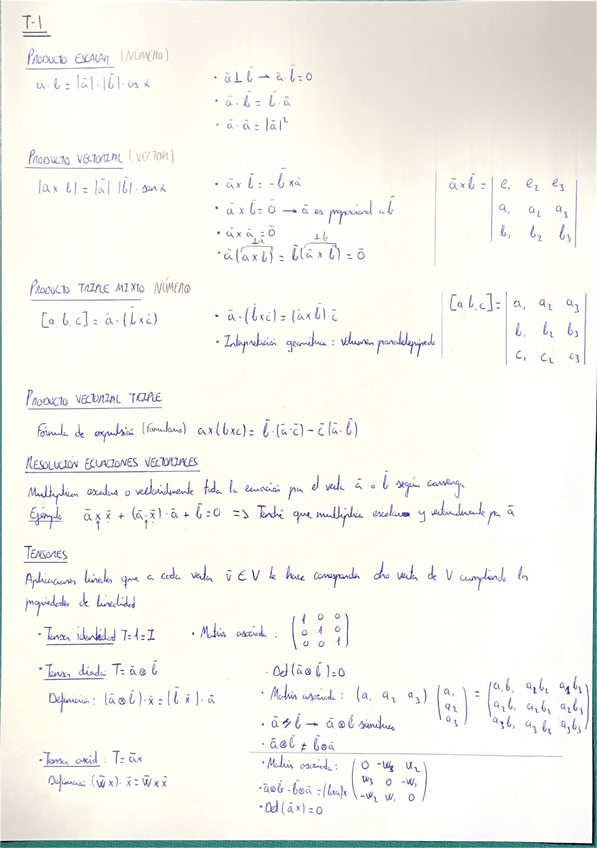 T-1
PRODUCTO ESCALAR (NÚMERO)
a · b = |ā| · |b̄| · cos α
· ā ⊥ b̄ → ā · b̄ = 0
· ā · b̄ = b̄ · ā
· ā · ā = |ā|²
PRODUCTO VECTORIAL (VECTOR)
|a x b| = |ā| |b̄| · sen α
· ā x b̄ = - b̄ x ā
· ā x b̄ = 0̄ → ā es proporcional a b̄
· ā x ā = 0̄
⊥a ⊥b
· ā (a x b) = b̄ (ā x b̄) = 0̄
ā x b̄ = | e₁ e₂ e₃ |
| a₁ a₂ a₃ |
| b₁ b₂ b₃ |
PRODUCTO TRIPLE MIXTO NÚMERO
[a, b, c] = ā · (b̄ x c̄)
· ā · (b̄ x c̄) = (ā x b̄) · c̄
· Interpretación geométrica: volumen paralelepípedo
[a, b, c] = | a₁ a₂ a₃ |
| b₁ b₂ b₃ |
| c₁ c₂ c₃ |
PRODUCTO VECTORIAL TRIPLE
Fórmula de expulsión (formulario) a x (b x c) = b̄ · (ā · c̄) - c̄ (ā · b̄)
RESOLUCIÓN ECUACIONES VECTORIALES
Multiplicar escalar o vectorialmente toda la ecuación por el vector ā o b̄ según convenga
Ejemplo ā x x̄ + (ā · x̄) · ā + b̄ = 0 => Tendré que multiplicar escalar y vectorialmente por ā
TENSORES
Aplicaciones lineales que a cada vector v̄ ∈ V le hace corresponder otro vector de V cumpliendo las
propiedades de linealidad
· Tensor identidad T = 1 = I
· Matriz asociada: ( 1 0 0 )
( 0 1 0 )
( 0 0 1 )
· Tensor díada: T = ā ⊗ b̄
Definición: (ā ⊗ b̄) · x̄ = (b̄ · x̄) · ā
· Det (ā ⊗ b̄) = 0
· Matriz asociada: (a₁ a₂ a₃) ( a₁ ) = ( a₁b₁ a₁b₂ a₁b₃ )
( a₂ ) ( a₂b₁ a₂b₂ a₂b₃ )
( a₃ ) ( a₃b₁ a₃b₂ a₃b₃ )
· ā // b̄ → ā ⊗ b̄ simétrico
· ā ⊗ b̄ ≠ b̄ ⊗ ā
· Tensor axial: T = ā x
Definición: (w̄ x) · x̄ = w̄ x x̄
· Matriz asociada: ( 0 -w₃ w₂ )
( w₃ 0 -w₁ )
( -w₂ w₁ 0 )
· ā ⊗ b̄ - b̄ ⊗ ā = (b x a) x
· Det (ā x) = 0